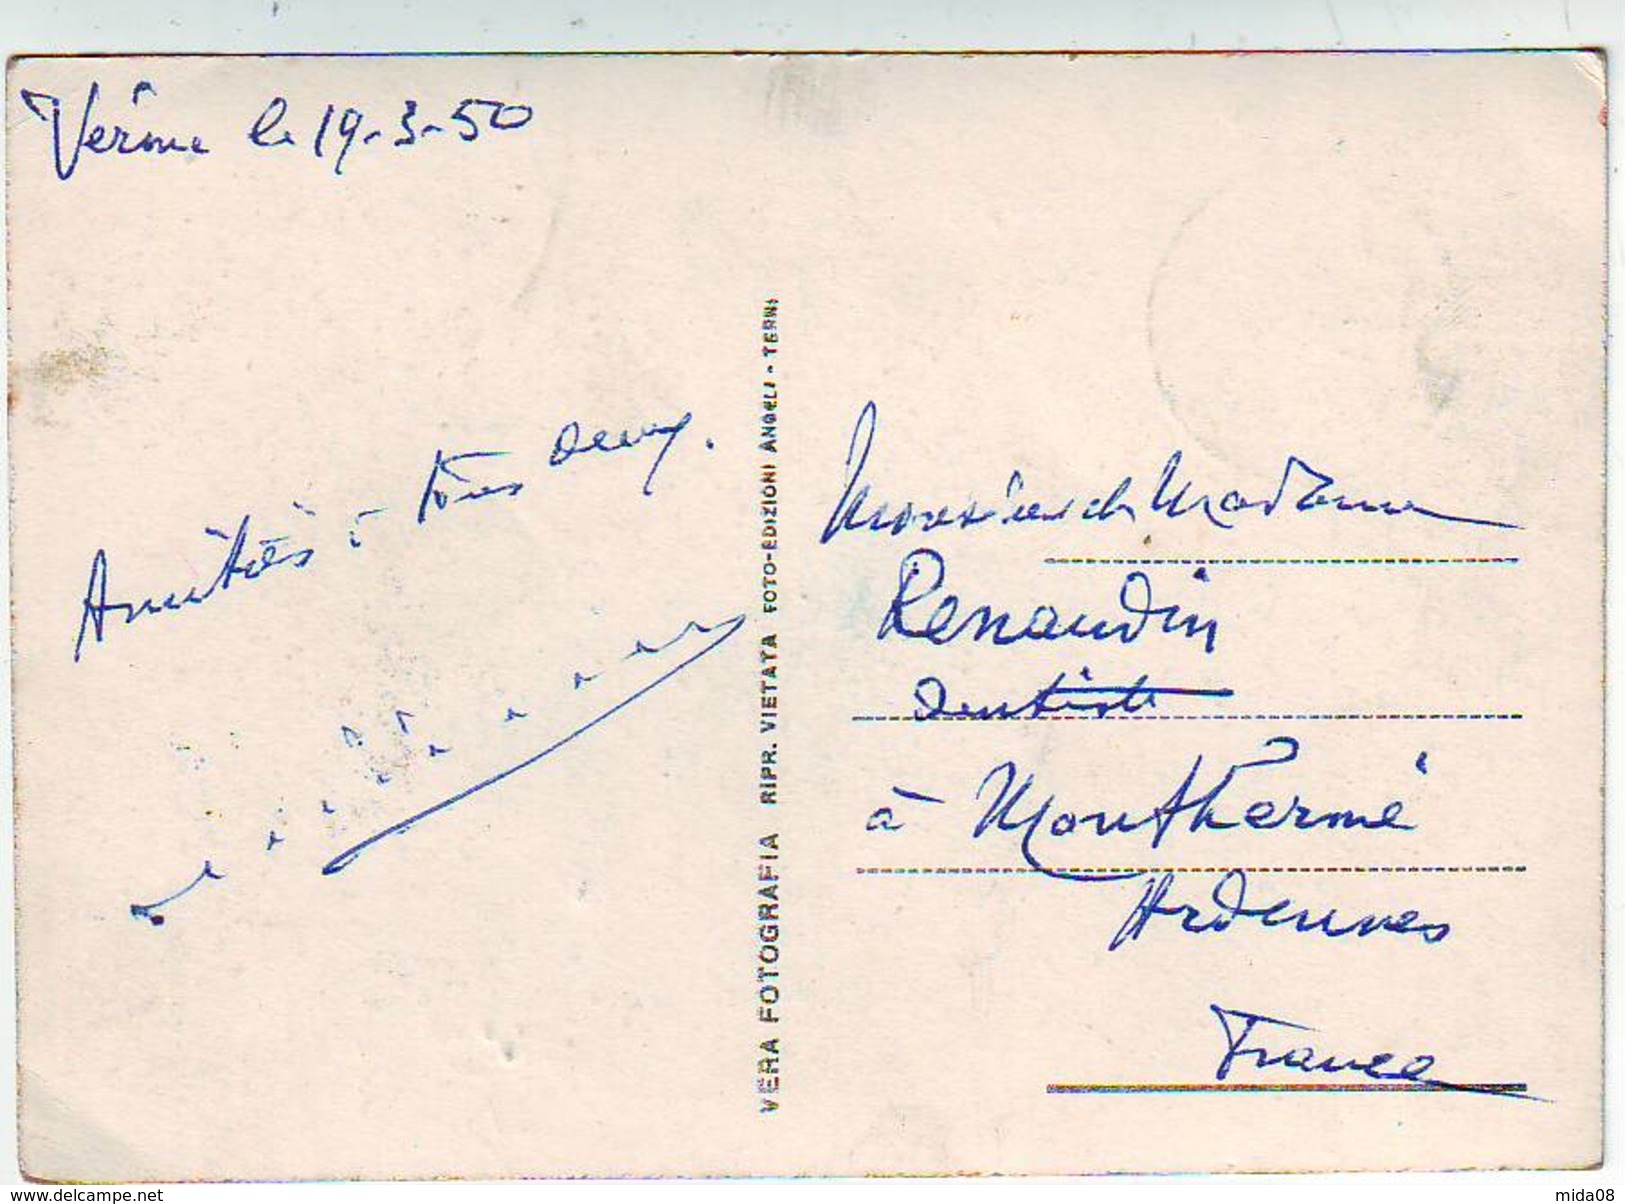 Vérone le 19-3-50
Amitiés à tous deux.
VERA FOTOGRAFIA RIPR. VIETATA FOTO-EDIZIONI ANGELI - TERNI
Monsieur et Madame
Renaudin
Dentiste
à Monthermé
Ardennes
France
www.delcampe.net
mida08